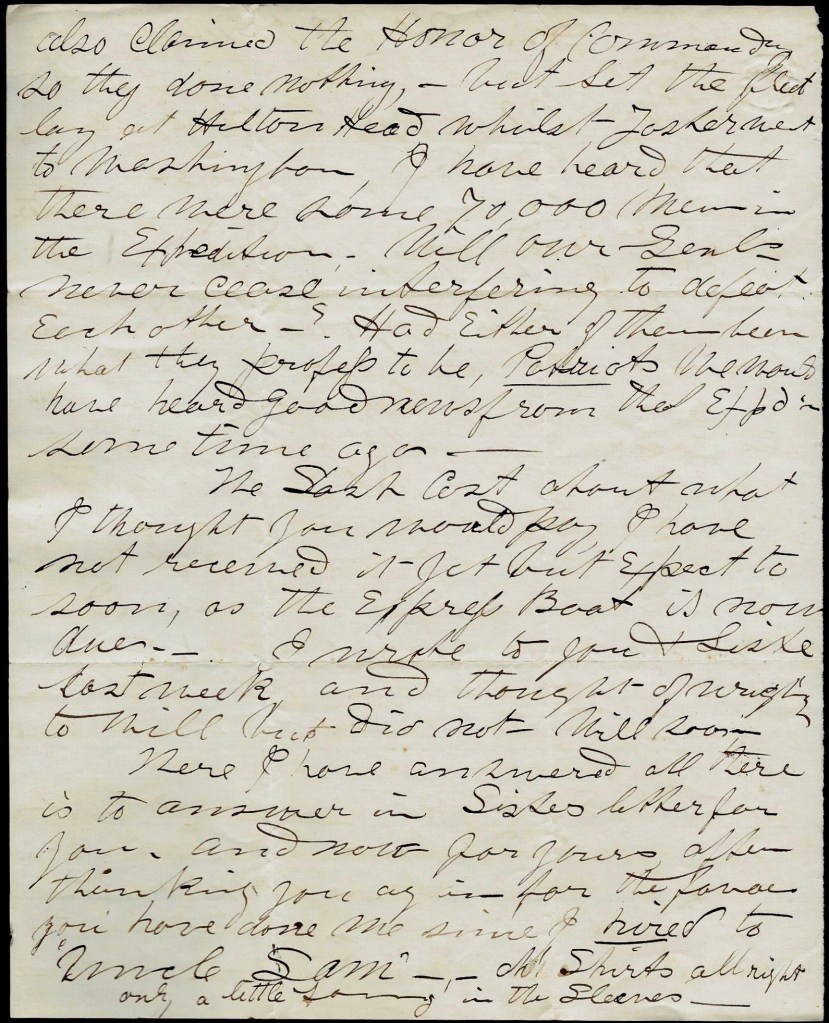 also Claimed the Honor of Commandg
so they done nothing, - but let the fleet
lay at Hilton Head whilst Foster went
to Washington, I have heard that
there were some 70,000 Men in
the Expedition, - Will our Genls
never cease interfering to defeat
Each other - ? Had Either of them been
what they profess to be, Patriots We would
have heard good news from the Expd'n
some time ago -
The Sash Cost about what
I thought you would pay, I have
not received it yet but Expect to
soon, as the Express Boat is now
due. - I wrote to you & Sister
last week, and thought of writing
to Will but did not - Will soon
Here I have answered all there
is to answer in Sisters letter for
you - and now for yours after
thanking you again for the favor
you have done me since I hired to
"Uncle Sam" -, - Shirts all right
only a little long in the Sleeves -